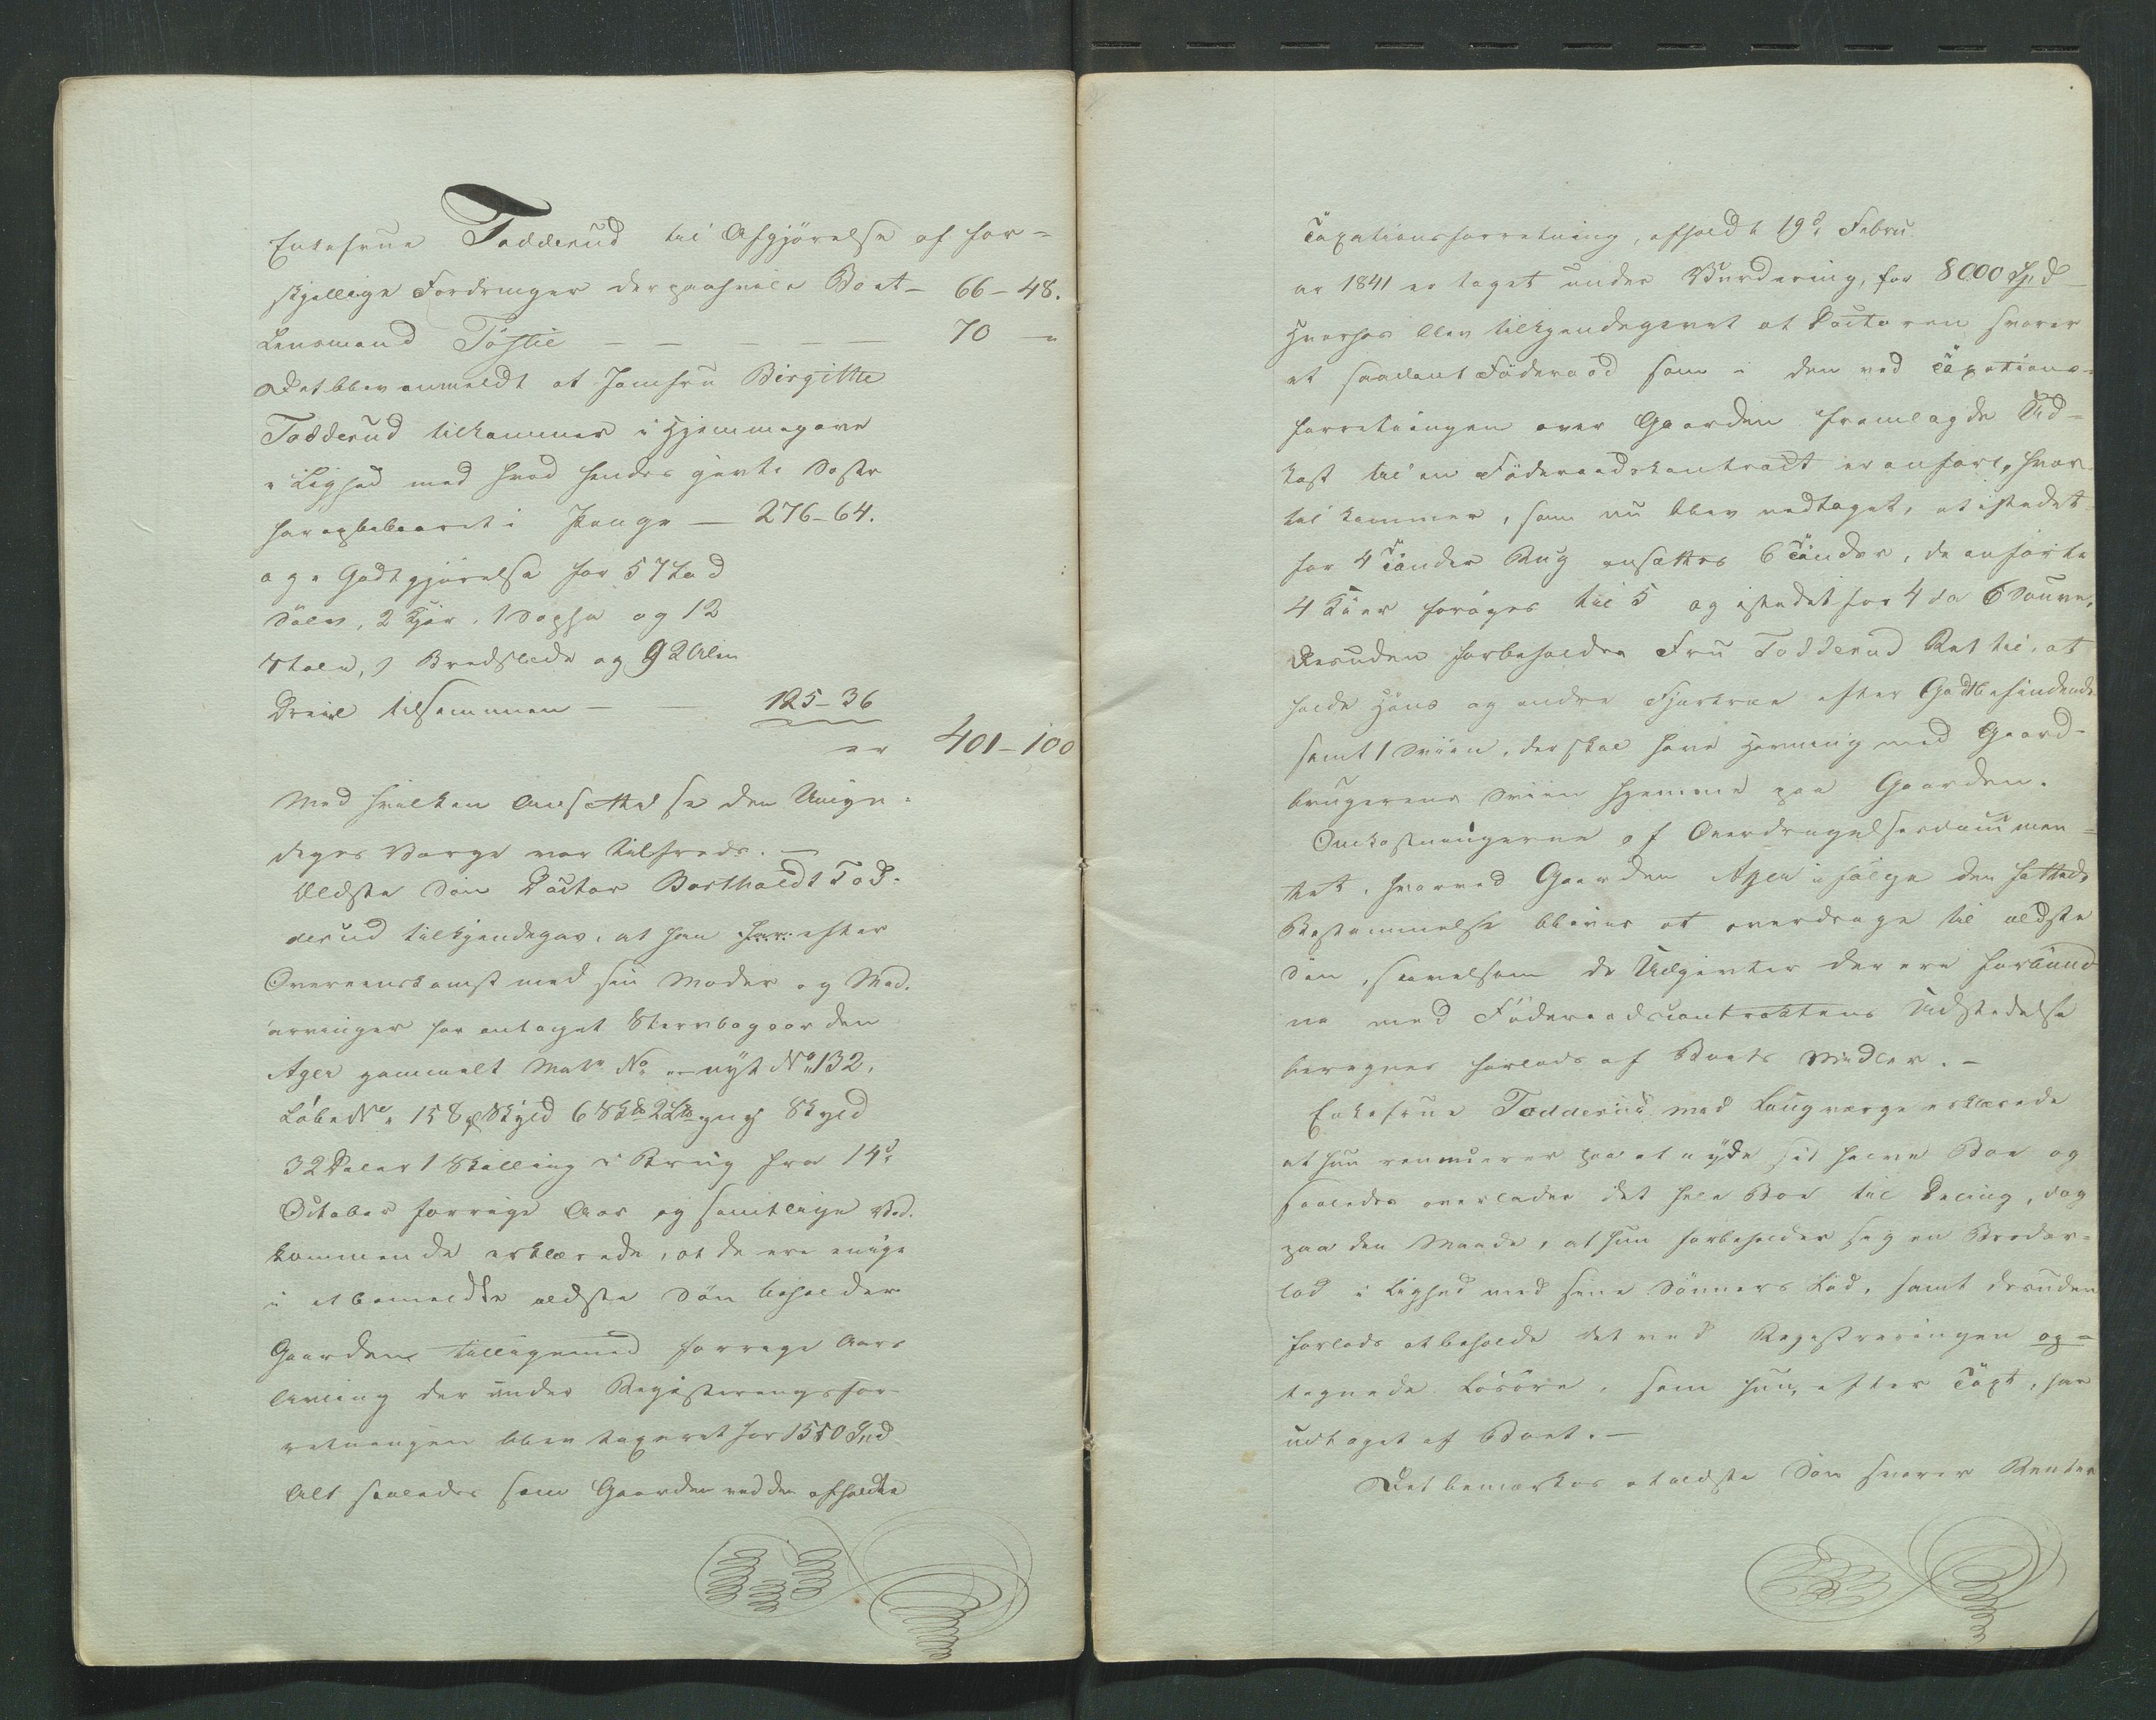 Enkefrue Todderud til Afgjörelse af for-
skjellige Fordringer der paahvile Boet - 66-48.
Lensmand Töstie - - - - - 70 - "
Det blev anmeldt at Jomfru Birgitte
Todderud tilkommer i Hjemmegave
i Lighed med hvad hendes givte Söster
har opbebaaret i Penge - 276-64.
og i Godtgjörelse for 57 Lod
Sölv, 2 Kjör, 1 Sopha og 12
Stole, 1 Bredslede og 92 Alen
Dreiel tilsammen - - 125-36
er 401-100
Med hvilken Ansættelse den Umyn-
diges Værge var tilfreds. -
Ældste Sön Doctor Bertholdt Tod-
derud tilkjendegav, at han har efter
Overeenskomst med sin Moder og Med-
arvinger har antaget Stervbogaarden
Ager gammelt Matr No " nyt No 132,
Löbe No " 158, Skyld 6 Skd 2 Lb ny Skyld
32 Daler 1 Skilling i Brug fra 14de
October forrige Aar og samtlige Ved-
kommende erklærede, at de ere enige
i at bemeldte ældste Sön beholder
Gaarden tilligemed forrige Aars
Avling der under Registreringsfor-
retningen blev taxeret for 1550 Spd
Alt saaledes som Gaarden ved den afholdte
Taxationsforretning, afholdt 19de Febru-
ar 1841 er taget under Vurdering, for 8000 Spd -
Hvorhos blev tilkjendegivet at Doctoren svarer
et saadant Föderaad som i den ved Taxations-
forretningen over Gaarden fremlagde Ud-
kast til en Föderaadskontract er anfört, hvor-
til kommer, som nu blev vedtaget, at istedet
for 4 Tönder Rug ansættes 6 Tönder, de anförte
4 Kiör foröges til 5 og istedet for 4 da 6 Souver,
Desuden forbeholder Fru Todderud Ret til, at
holde Höns og andre Fjærkræ efter Godtbefindende
samt 1 Sviin, der skal have Havning med Gaard-
brugerens Sviin hjemme paa Gaarden.
Omkostningerne af Overdragelsesdocumen-
tet, hvorved Gaarden Ager ifölge den fattede
Bestemmelse bliver at overdrage til ældste
Sön, saavelsom de Udgivter der ere forbund-
ne med Föderaadscontraktens Udstedelse
beregnes forlods af Boets Midler. -
Enkefrue Todderud med Laugværge erklærede
at hun renuncerer paa at nyde sit halve Boe og
saaledes overlader det hele Boe til Deling, dog
paa den Maade, at hun forbeholder sig en Broder-
lod i Lighed med sine Sönners Lod, samt desuden
forlods at beholde det ved Registreringen op-
tegnede Lösöre, som hun, efter Taxt, har
udtaget af Boet. -
Det bemærkes at ældste Sön svarer Renter